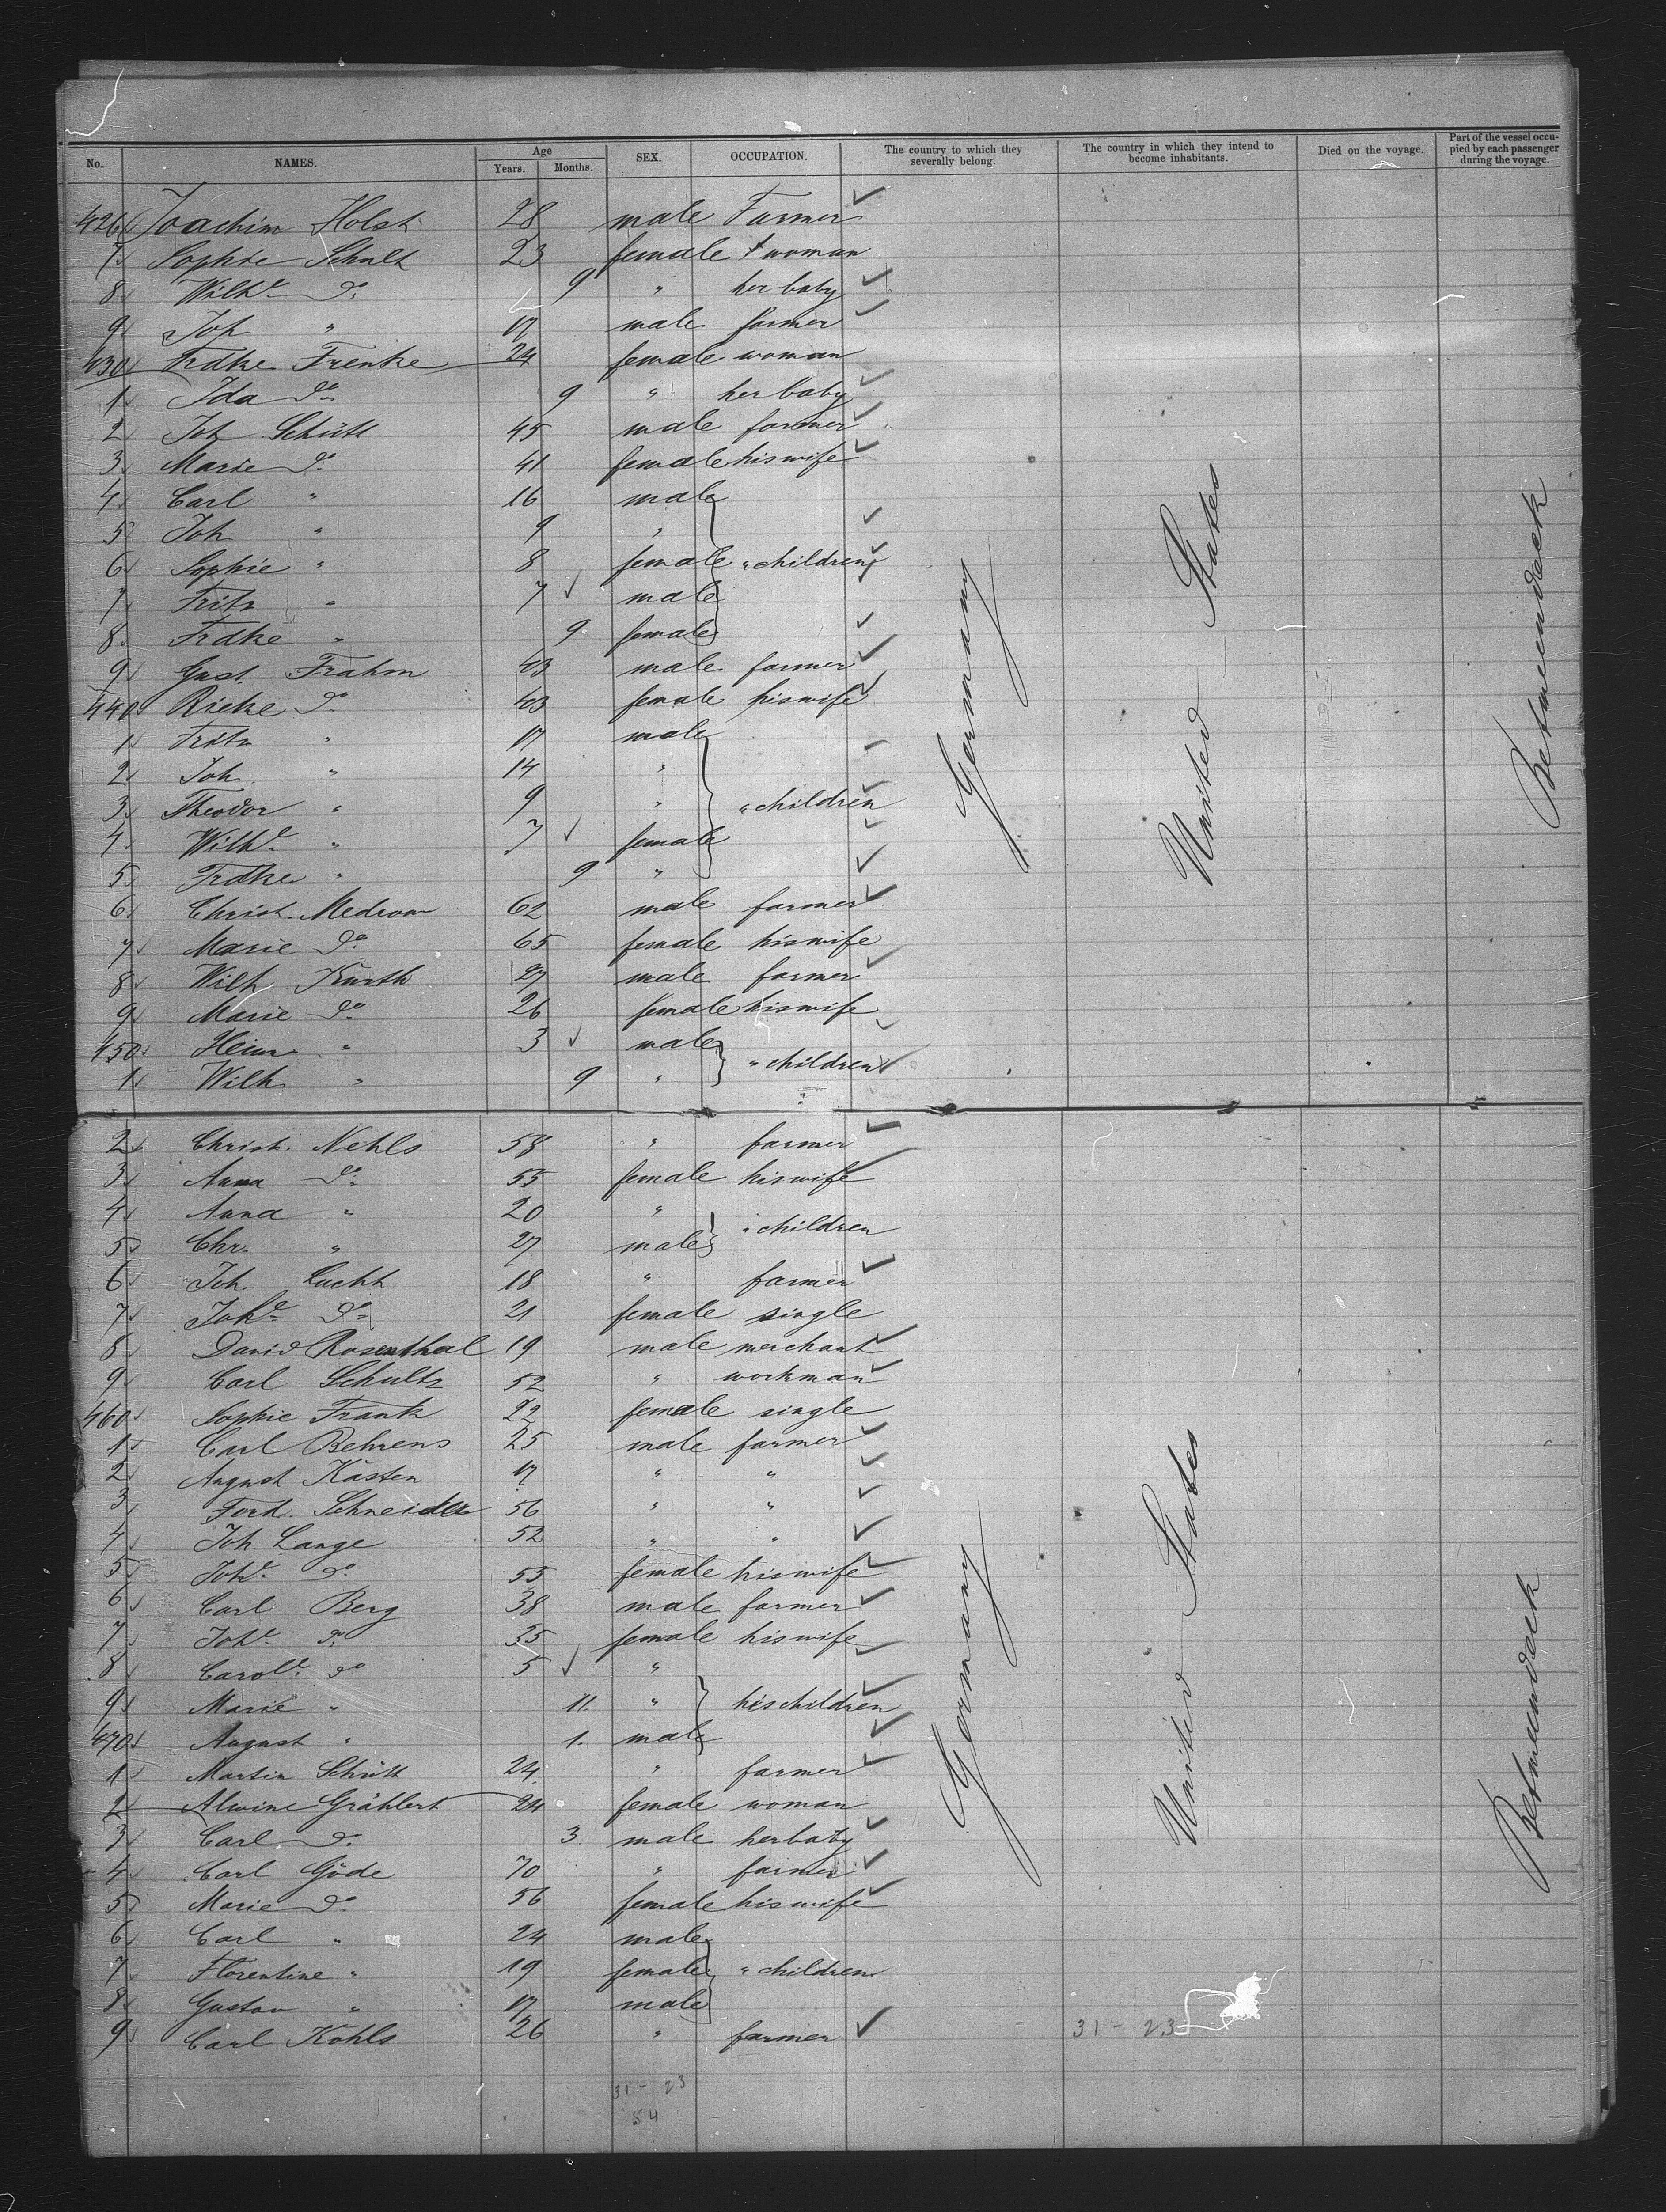 No. NAMES. Age Years. Months. SEX. OCCUPATION. The country to which they severally belong. The country in which they intend to become inhabitants. Died on the voyage. Part of the vessel occupied by each passenger during the voyage.
426 Joachim Holst 28 male Farmer
7 Sophie Schult 23 female woman
8 Wilhe do 9 " her baby
9 Joh " 17 male farmer
430 Frdke Frenke 24 female woman
1 Ida do 9 " her baby
2 Joh Schütt 45 male farmer
3 Marie do 41 female his wife
4 Carl " 16 male
5 Joh " 9 "
6 Sophie " 8 female " children
7 Fritz " 7 male
8 Frdke " 9 female
9 Gust. Frahm 43 male farmer
440 Rieke do 43 female his wife
1 Fritz " 17 male
2 Joh. " 14 "
3 Theodor " 9 " " children
4 Wilhe " 7 female
5 Frdke " 9 "
6 Christ. Medrow 62 male farmer
7 Marie do 65 female his wife
8 Wilh. Kurth 27 male farmer
9 Marie do 26 female his wife
450 Heinr " 3 male
1 Wilh " 9 " " children
Germany United States Betweendeck
2 Christ. Nehls 58 " farmer
3 Anna do 55 female his wife
4 Anna " 20 " " children
5 Chr. " 27 male
6 Joh. Lucht 18 " farmer
7 Johe do 21 female single
8 David Rosenthal 19 male merchant
9 Carl Schultz 52 " workman
460 Sophie Frank 22 female single
1 Carl Behrens 25 male farmer
2 August Kästen 17 " "
3 Ferd. Schneider 56 " "
4 Joh. Lange 52 " "
5 Johe do 55 female his wife
6 Carl Berg 38 male farmer
7 Johe do 35 female his wife
8 Carole do 5 "
9 Marie " 11. " his children
470 August " 1. male
1 Martin Schütt 24 " farmer
2 Alwine Grählert 24 female woman
3 Carl do 3 male her baby
4 Carl Göde 70 " farmer
5 Marie do 56 female his wife
6 Carl " 24 male
7 Florentine " 19 female " children
8 Gustav " 17 male
9 Carl Kohls 26 " farmer
Germany United States Betweendeck
31 - 23
31 - 23
54